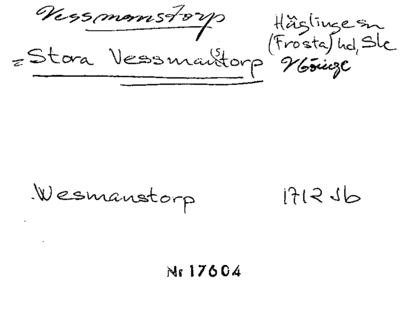 Vessmanstorp
Häglinge sn
(Frosta) hd, Sk
= Stora Vessman(s)torp
Wesmanstorp 1712 Jb
Nr 17604